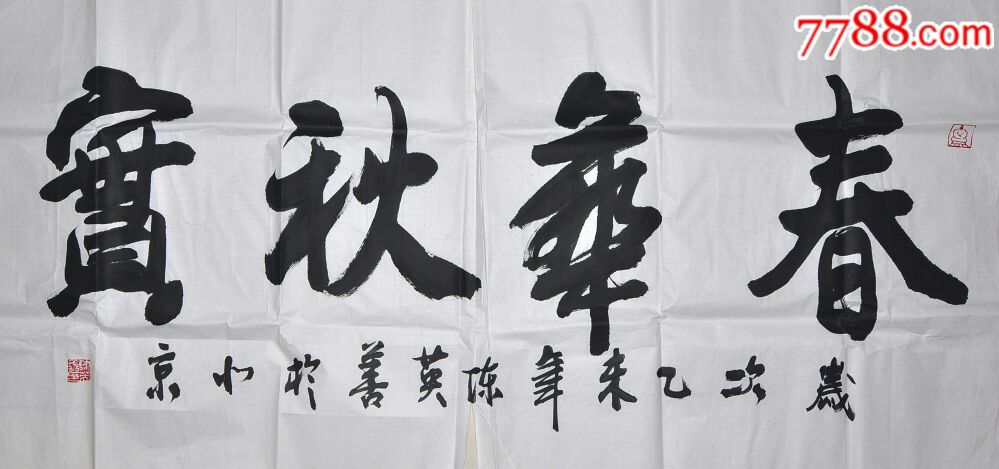 7788.com
春華秋實
歲次乙未年陈英善於北京